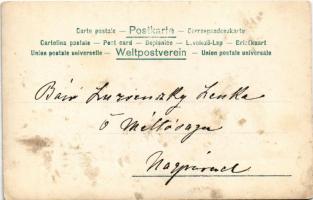 Carte postale — Postkarte — Correspondenzkarte
Cartolina postale — Post card — Dopisnice — Levelező-Lap — Briefkaart
Union postale universelle — Weltpostverein — Union postale universale
Báró Luzsenszky Lenka
Ő Méltósága